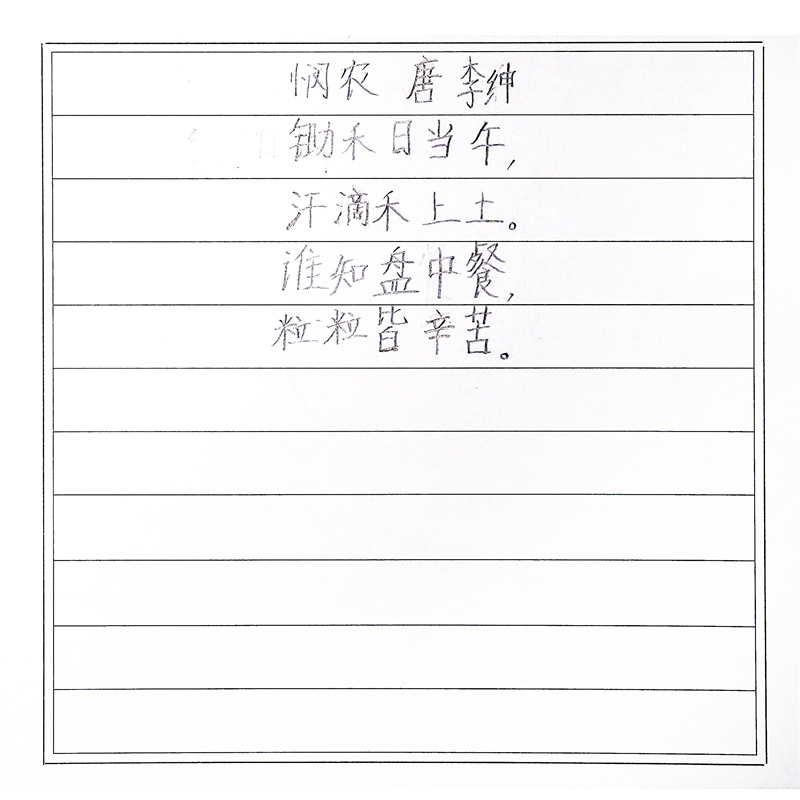 悯农 唐 李绅
锄禾日当午,
汗滴禾上土。
谁知盘中餐,
粒粒皆辛苦。